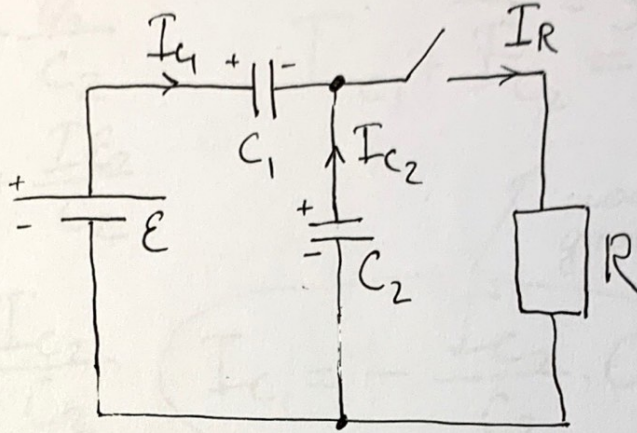 I_{C1} + - I_R
C_1 I_{C2}
+
- ε + - C_2 R